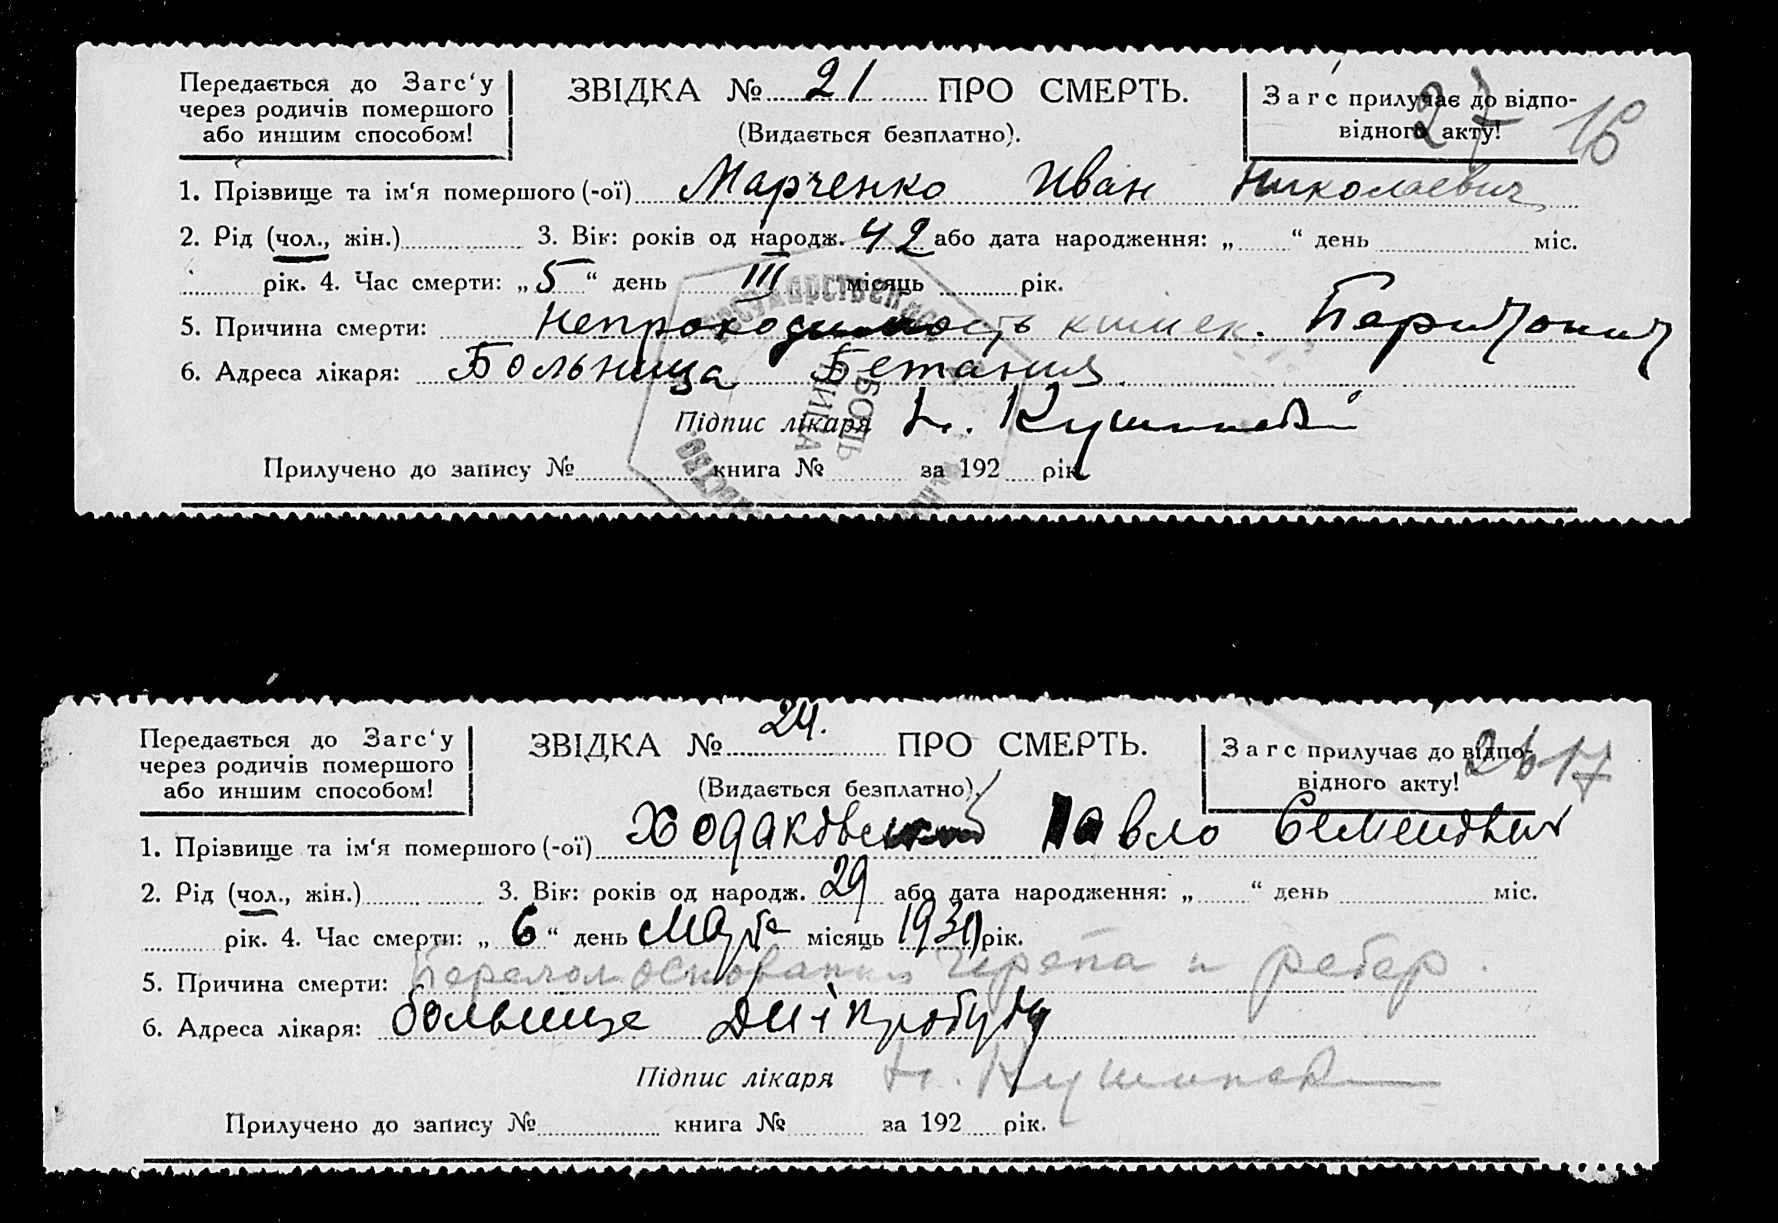 Передається до Загс‘у
через родичів помершого
або иншим способом!
ЗВІДКА № 21 ПРО СМЕРТЬ.
(Видається безплатно).
Загс прилучає до відпо-
відного акту!
27
16
1. Прізвище та ім‘я помершого (-ої) Марченко Иван Николаевич
2. Рід (чол., жін.) 3. Вік: років од народж. 42 або дата народження: „ “ день міс.
рік. 4. Час смерти: „ 5 “ день III місяць рік.
5. Причина смерти: Непроходимость кишек. Перитонит
6. Адреса лікаря: Больница Бетания
Підпис лікаря Н.
Прилучено до запису № книга № за 192 рік.
БОЛЬ
НИЦА
Передається до Загс‘у
через родичів помершого
або иншим способом!
ЗВІДКА № 24. ПРО СМЕРТЬ.
(Видається безплатно).
Загс прилучає до відпо-
відного акту!
26 17
1. Прізвище та ім‘я помершого (-ої) Ходаковский Павло Семенович
2. Рід (чол., жін.) 3. Вік: років од народж. 29 або дата народження: „ “ день міс.
рік. 4. Час смерти: „ 6 “ день Марта місяць 1930 рік.
5. Причина смерти: Перелом основания черепа и ребер.
6. Адреса лікаря: больнице Дніпробуду
Підпис лікаря Н.
Прилучено до запису № книга № за 192 рік.